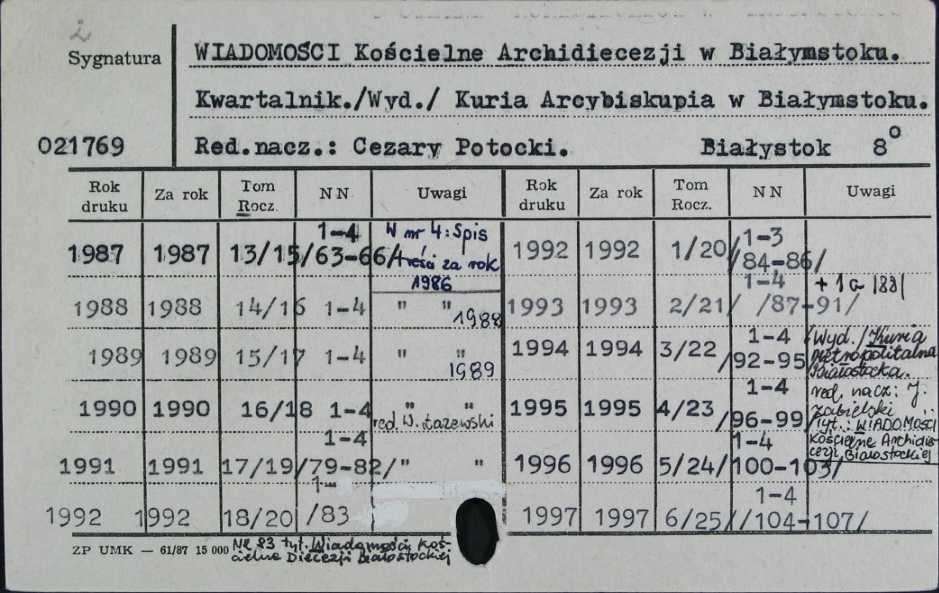 Sygnatura
WIADOMOŚCI Kościelne Archidiecezji w Białymstoku.
Kwartalnik./Wyd./ Kuria Arcybiskupia w Białymstoku.
021769 Red.nacz.: Cezary Potocki. Białystok 8°
Rok druku Za rok Tom Rocz. N N Uwagi Rok druku Za rok Tom Rocz. N N Uwagi
1987 1987 13/15 1-4 /63-66/ W nr 4: Spis treści za rok 1986
1988 1988 14/16 1-4 " " 1988
1989 1989 15/17 1-4 " " 1989
1990 1990 16/18 1-4 " " red. W. Łazewski
1991 1991 17/19 1-4 /79-82/ " "
1992 1992 18/20 1- /83
1992 1992 1/20 1-3 /84-86/
1993 1993 2/21/ 1-4 /87-91/ + 1a
1994 1994 3/22 1-4 /92-95 /Wyd./ Kuria Metropolitalna Białostocka.
1995 1995 4/23 1-4 /96-99 red. nacz: J. Zabielski
/Tyt.: WIADOMOŚCI Kościelne Archidiecezji Białostockiej
1996 1996 5/24 1-4 /100-103/
1997 1997 6/25/ 1-4 /104-107/
ZP UMK — 61/87 15 000 Nr 83 tyt. Wiadomości Koś-
cielne Diecezji Białostockiej